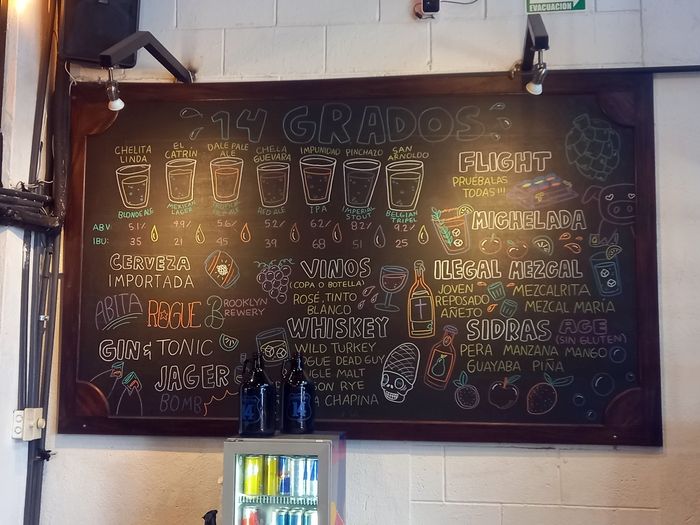 EVACUACION
14 GRADOS
CHELITA LINDA
EL CATRIN
DALE PALE ALE
CHELLA GUEVARA
IMPUNIDAD
PINCHAZO
SAN ARNOLDO
BLONDE ALE
MEXICAN LAGER
RED ALE
IPA
IMPERIAL STOUT
BELGIAN TRIPEL
ABV: 5.1% 4.9% 5.6% 5.2% 6.2% 8.2% 9.2%
IBU: 35 21 45 39 68 51 25
FLIGHT
PRUEBALAS
TODAS!!!
MICHELADA
CERVEZA
IMPORTADA
ABITA
ROGUE
BROOKLYN
BREWERY
GIN & TONIC
JAGER
BOMB
VINOS
(COPA O BOTELLA)
ROSÉ, TINTO
BLANCO
WHISKEY
WILD TURKEY
ROGUE DEAD GUY
RYE
CHAPINA
ILEGAL MEZCAL
JOVEN
REPOSADO
AÑEJO
MEZCALRITA
MEZCAL MARÍA
SIDRAS AGE
(SIN GLUTEN)
PERA MANZANA MANGO
GUAYABA PIÑA
14
14